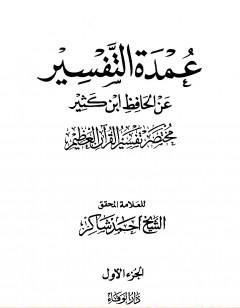 عُمدَة التَّفسِير
عَن الحَافِظ ابن كَثِير
مُختَصَر تَفسِير القُرآن العَظِيم
للعلامة المحقق
الشيخ أحمد شاكر
الجزء الأول
دار الوفاء